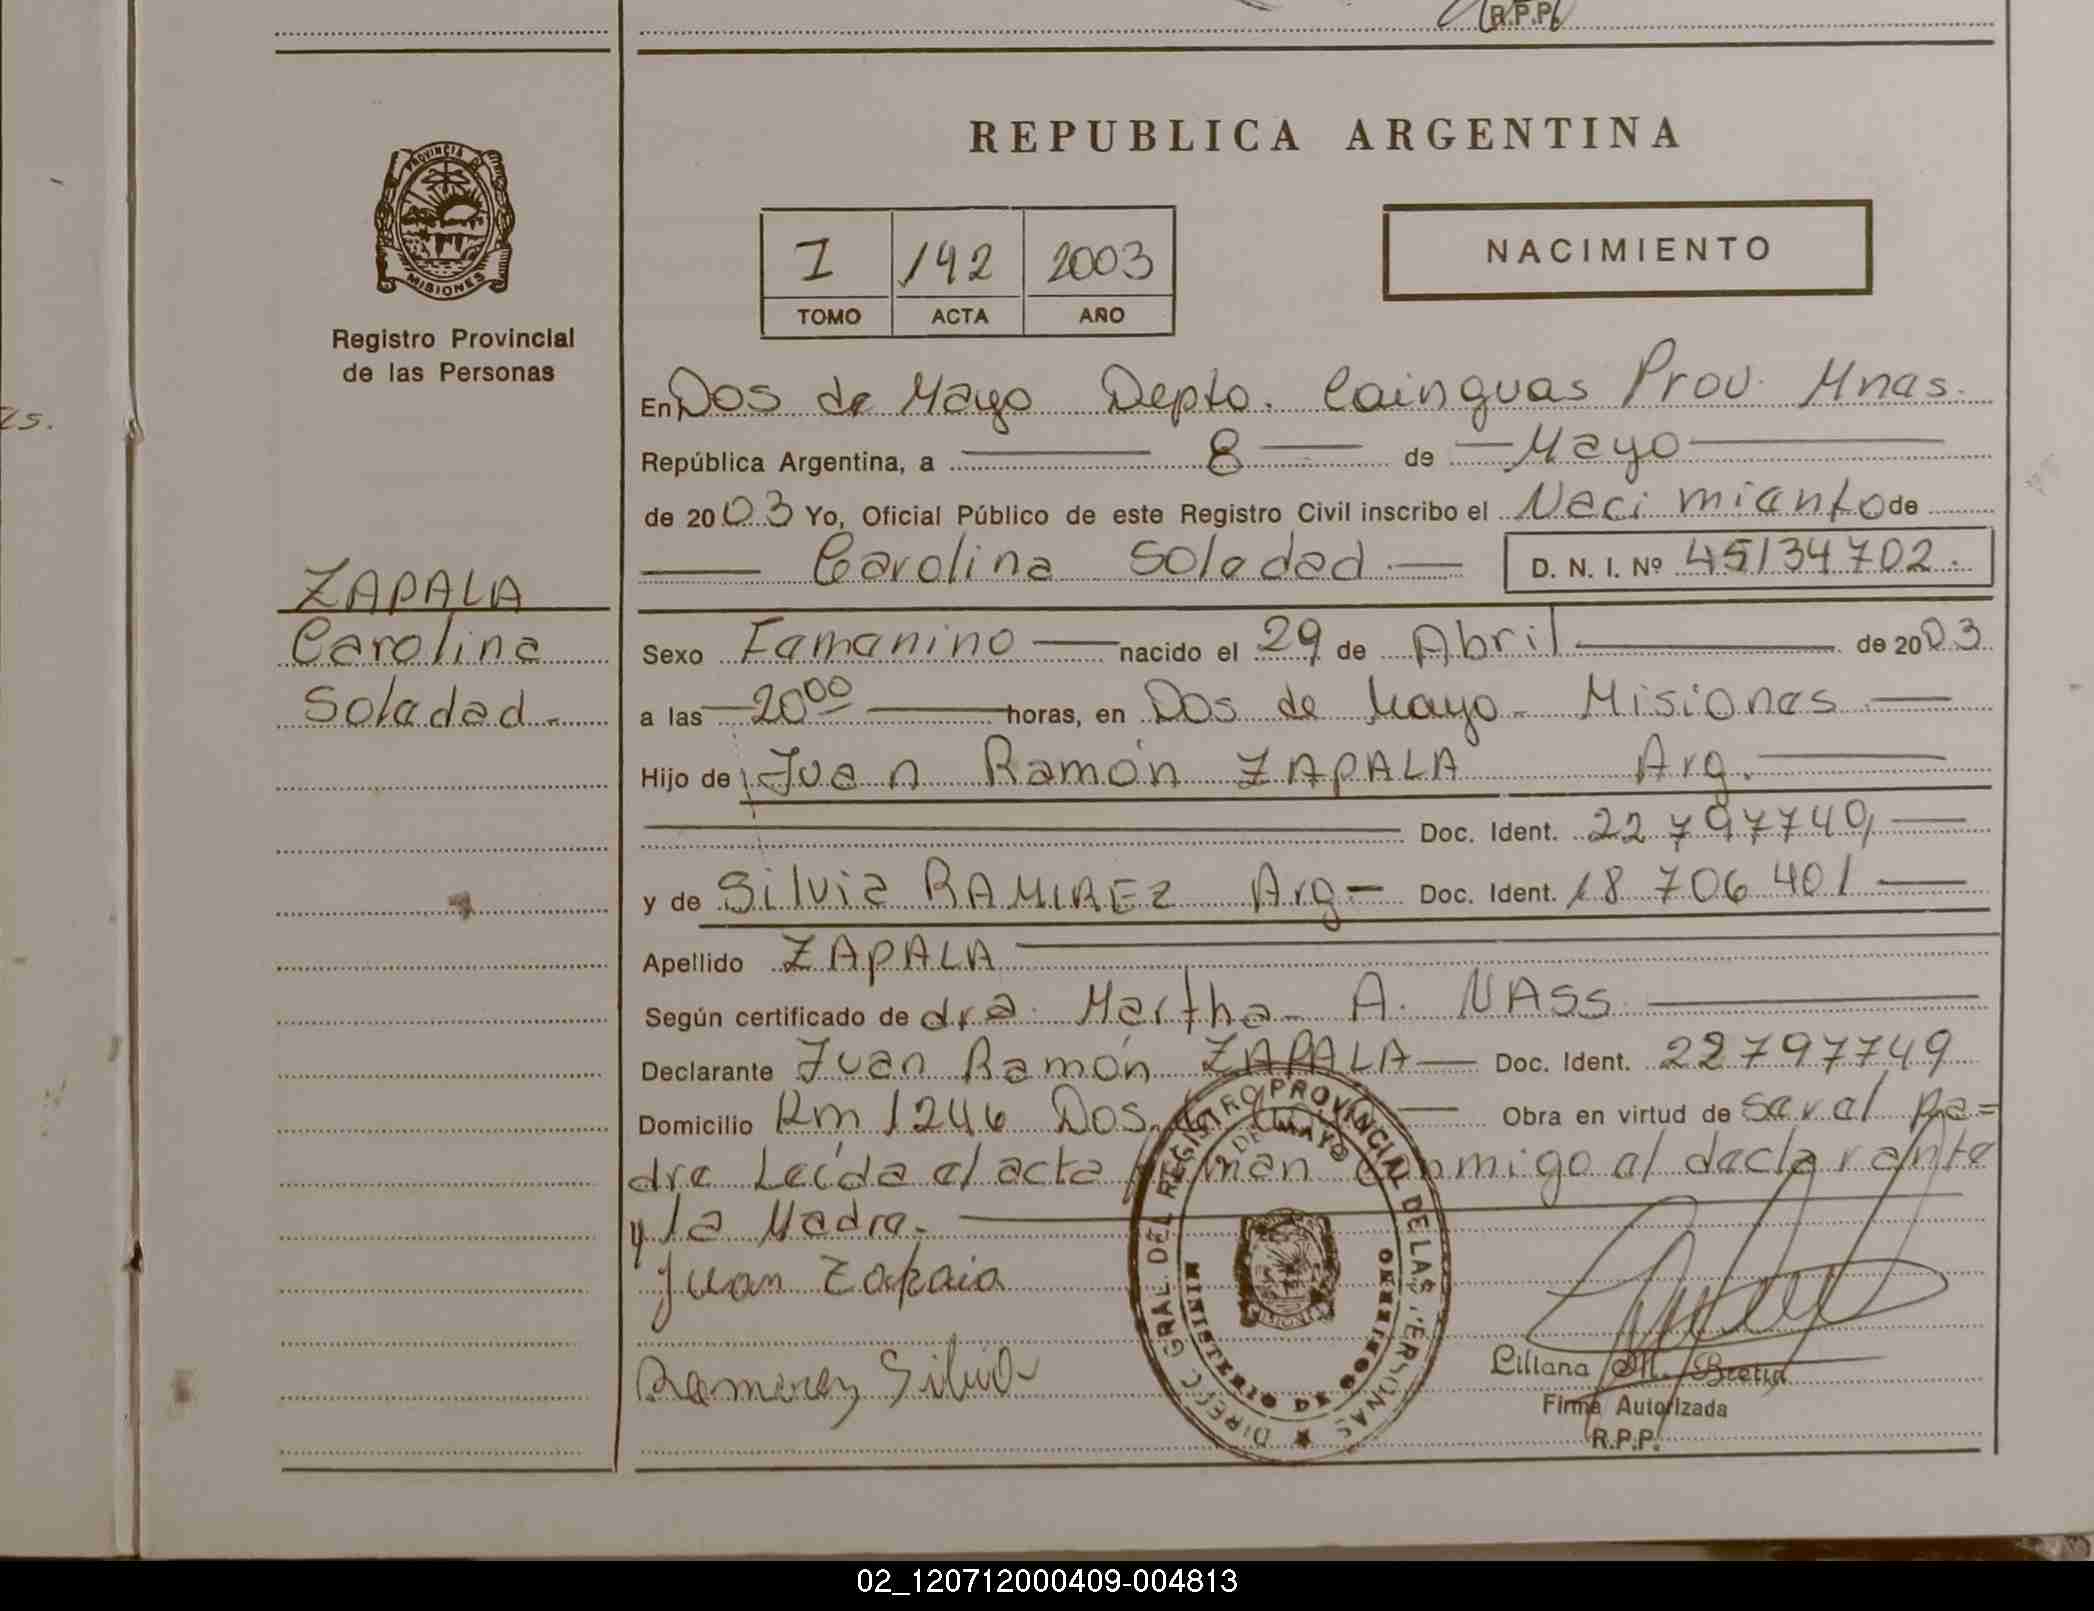 R.P.P.
REPUBLICA ARGENTINA
PROVINCIA DE
MISIONES
Registro Provincial
de las Personas
I 142 2003
TOMO ACTA AÑO
NACIMIENTO
En Dos de Mayo Depto. Cainguas Prov. Mnas.
República Argentina, a 8 de Mayo
de 2003 Yo, Oficial Público de este Registro Civil inscribo el Nacimiento de
Carolina Soledad D. N. I. Nº 45134702.
ZAPALA
Carolina
Soledad.-
Sexo Femenino nacido el 29 de Abril de 2003
a las 20⁰⁰ horas, en Dos de Mayo - Misiones
Hijo de Juan Ramón ZAPALA Arg.
Doc. Ident. 22797749
y de Silvia RAMIREZ Arg- Doc. Ident. 18 706 401
Apellido ZAPALA
Según certificado de dra. Martha A. NASS
Declarante Juan Ramón ZAPALA Doc. Ident. 22797749
Domicilio Km 1246 Dos de Mayo Obra en virtud de ser el pa=
dre Leída el acta firman conmigo el declarante
y la Madre.-
Juan Zapaia
Ramirez Silvia
DIRECC GRAL DEL REGISTRO PROVINCIAL DE LAS PERSONAS
2 DE MAYO
MINISTERIO DE GOBIERNO
Liliana M. Bretin
Firma Autorizada
R.P.P.
02_120712000409-004813